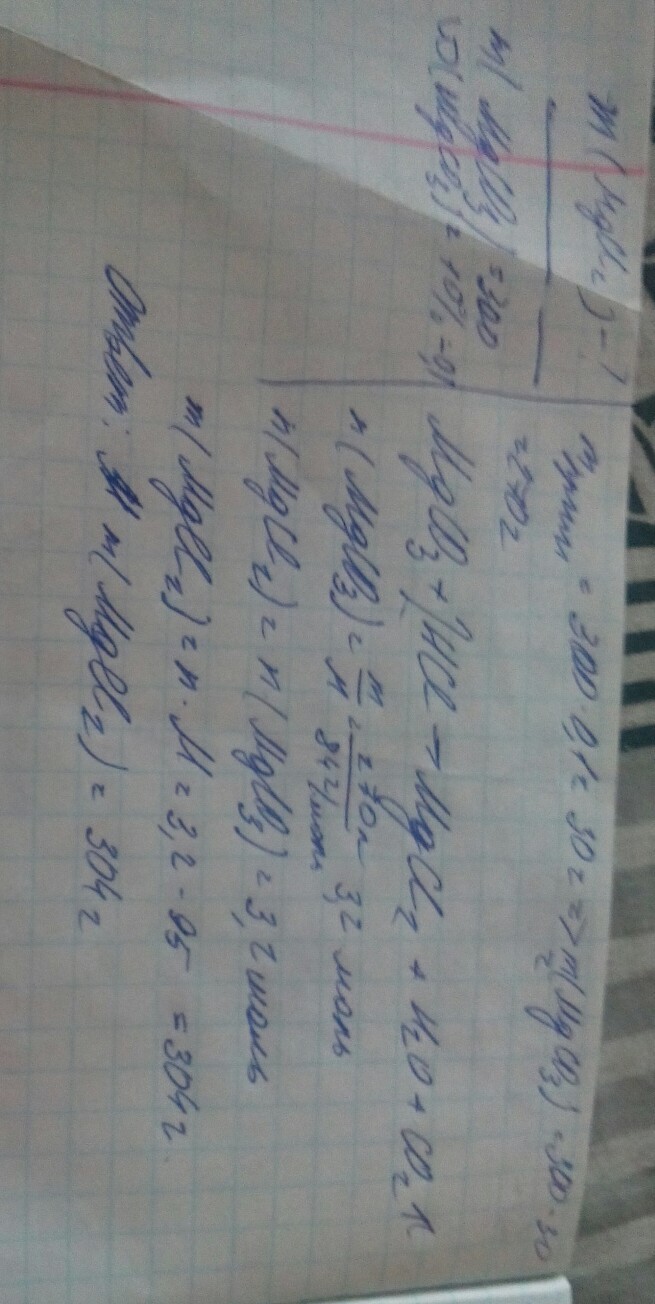 m(MgCl₂) - ?
m(MgCO₃) = 300
ω(MgCO₃) = 10% = 0,1
m прим = 300 · 0,1 = 30 г => m(MgCO₃) = 300 - 30
= 270 г
MgCO₃ + 2HCl → MgCl₂ + H₂O + CO₂ ↑
n(MgCO₃) = m/M = 270 г/84 г/моль = 3,2 моль
n(MgCl₂) = n(MgCO₃) = 3,2 моль
m(MgCl₂) = n · M = 3,2 · 95 = 304 г.
Ответ: m(MgCl₂) = 304 г